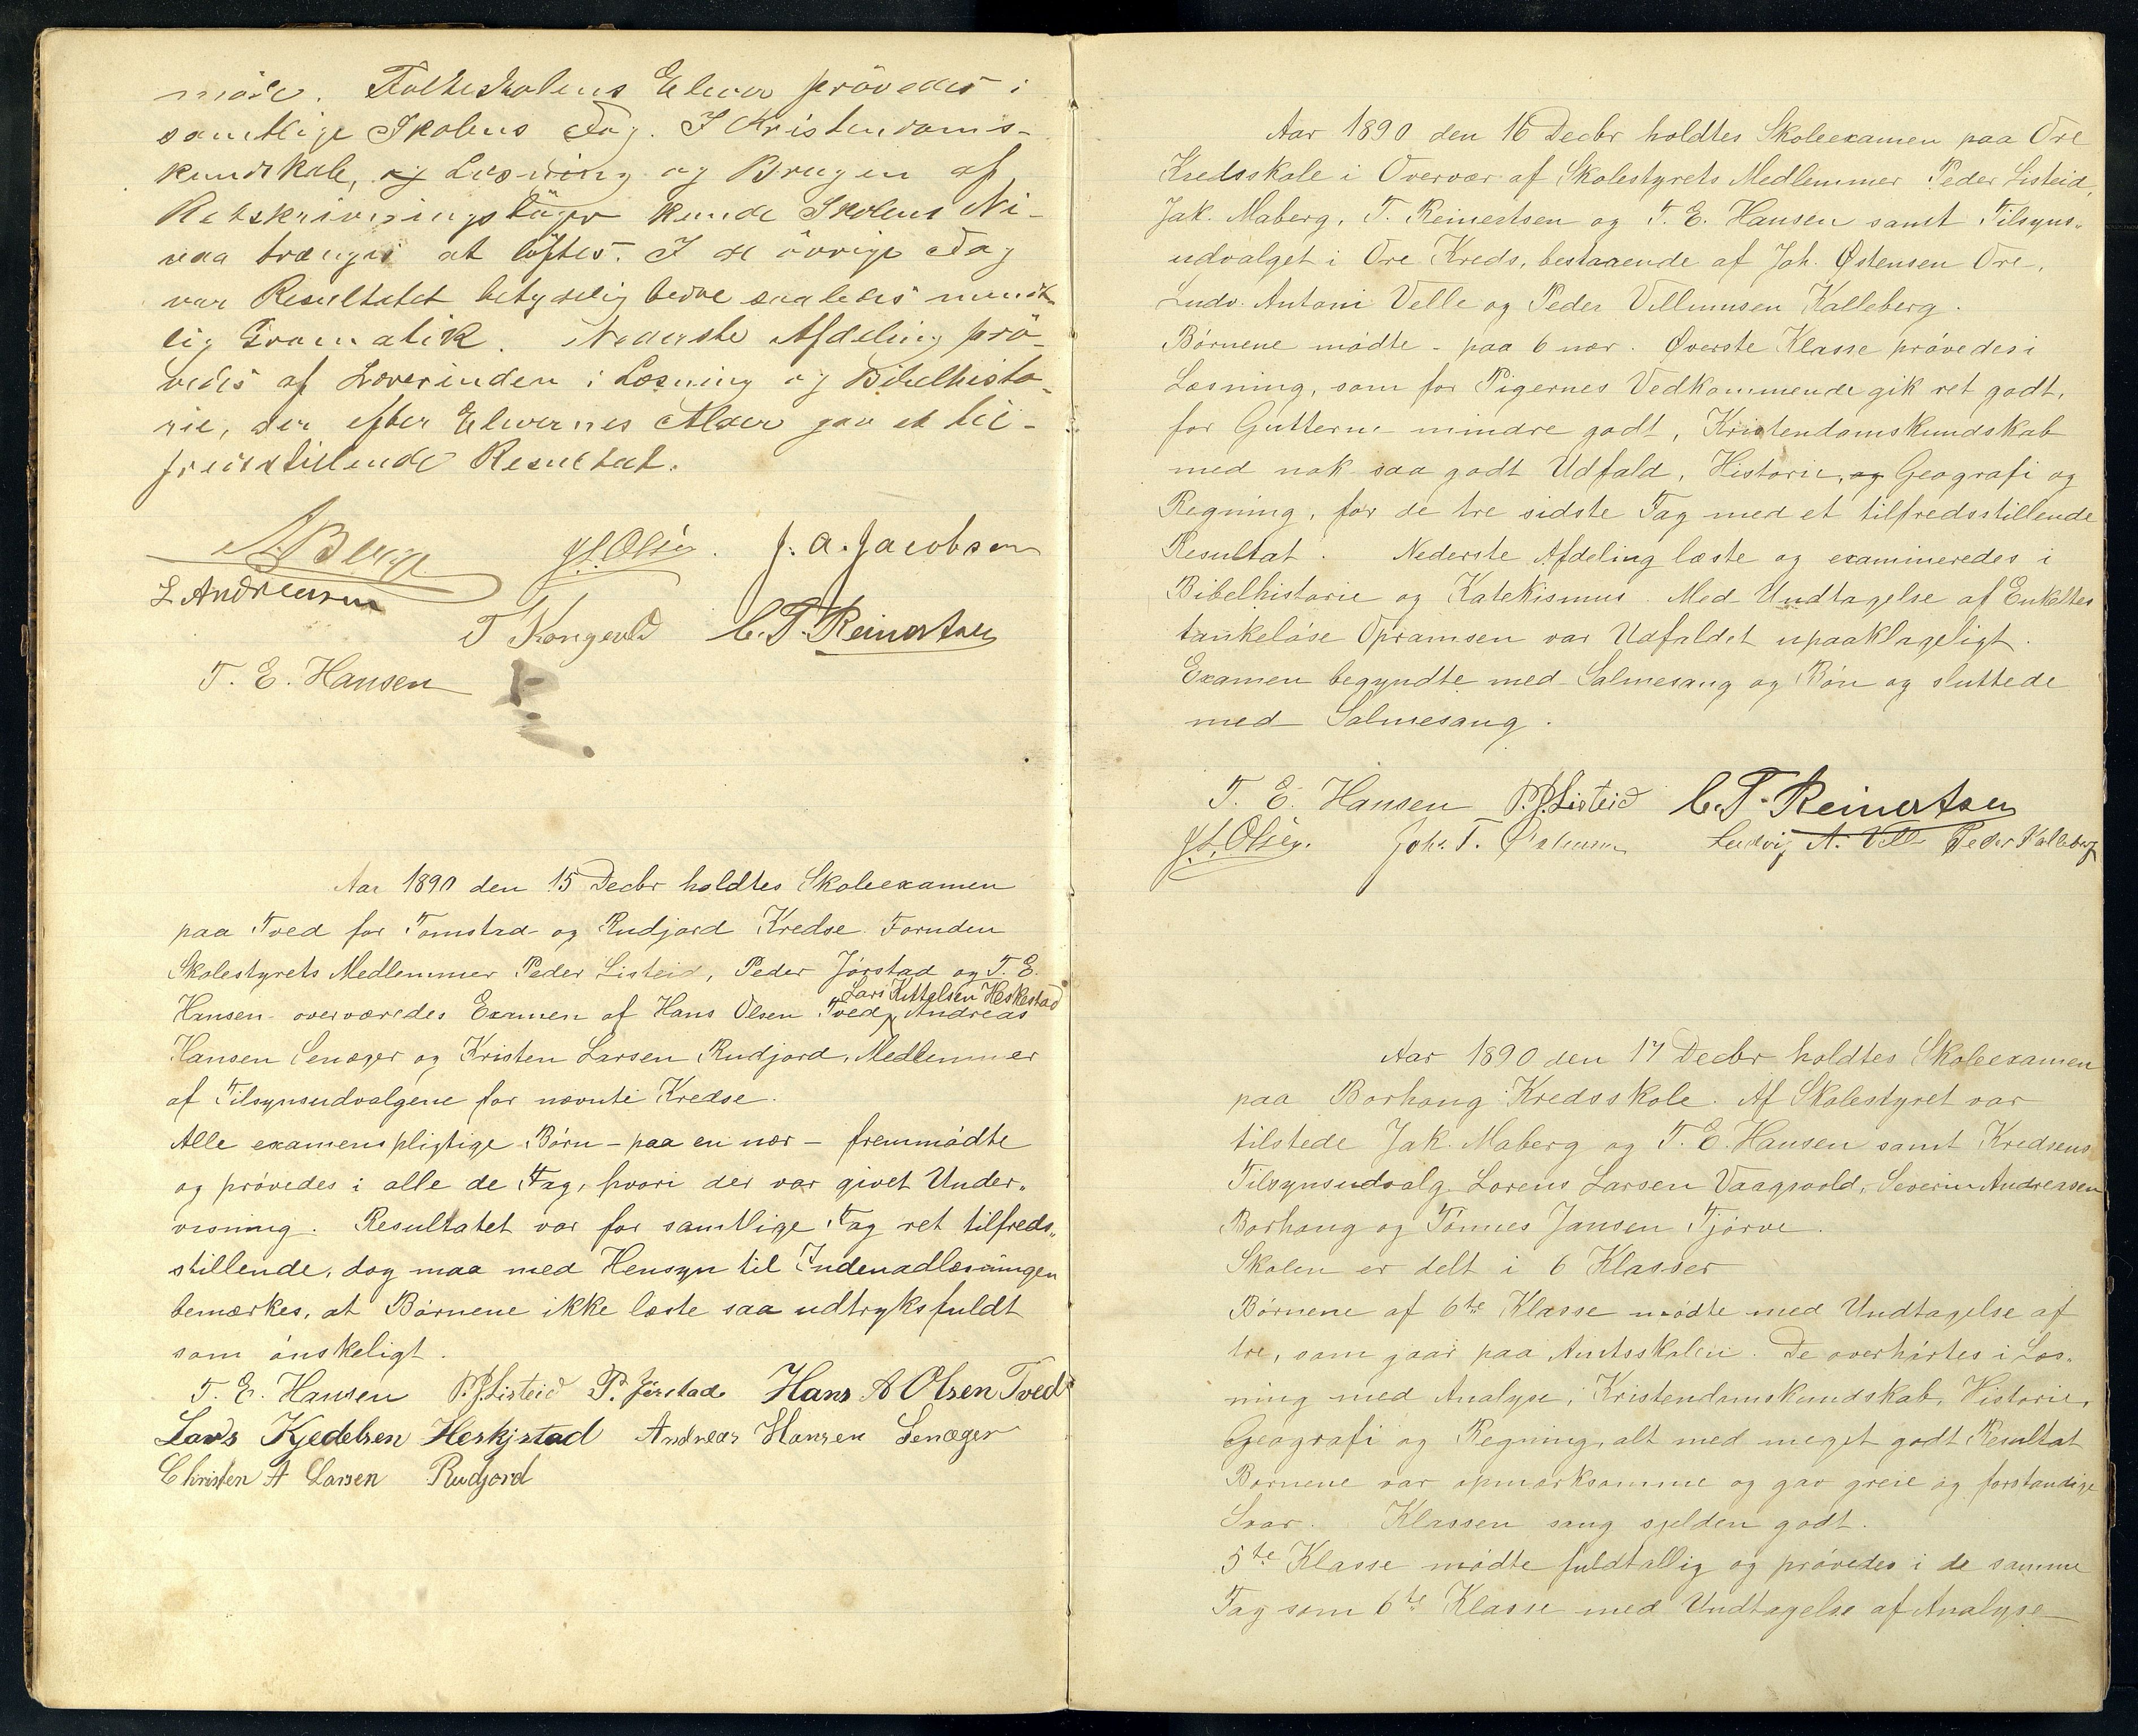 Folkeskolens Elever prövedes i
samtlige Skolens Fag. I Kristendoms-
kundskab, og Læsning og Brugen af
Retskrivnings kunde Skolens Ni-
vaa trænges at löftes. I de övrige Fag
var Resultatet betydelig bedre saaledes mundt
lig Gramatik. Nederste Afdeling prö-
vedes af Lærerinden i Læsning og Bibelhisto-
rie, der efter Elevernes Alder gav et til-
fredsstillende Resultat.
Berge J.L. Olsen. J. A. Jacobsen
L Andreasen
T Kongevold C. T. Reinertsen
T. E. Hansen
Aar 1890 den 15 Decbr holdtes Skoleexamen
paa Tved for Tomstad og Rudjord Kredse. Foruden
Skolestyrets Medlemmer Peder Listeid, Peder Jörstad og T. E.
Lars Kittelsen Heskestad
Hansen overværedes Examen af Hans Olsen Tved, Andreas
Hansen Senæger og Kristen Larsen Rudjord, Medlemmer
af Tilsynsudvalgene for nævnte Kredse.
Alle examenspligtige Börn - paa en nær - fremmödte
og prövedes i alle de Fag, hvori der var givet Under-
visning. Resultatet var for samtlige Fag ret tilfreds-
stillende, dog maa med Hensyn til Indenadlæsningen
bemærkes, at Börnene ikke læste saa udtryksfuldt
som önskeligt.
T. E. Hansen P. J. Listeid P. Jörstad Hans A Olsen Tved
Lars Kjedelsen Heskjstad Andreas Hansen Senæger
Christen A Larsen Rudjord
Aar 1890 den 16 Decbr holdtes Skoleexamen paa Ore
Kredsskole i Overvær af Skolestyrets Medlemmer Peder Listeid,
Jak. Maberg, T. Reinertsen og T. E. Hansen samt Tilsyns-
udvalget i Ore Kreds, bestaaende af Joh. Østensen Ore,
Ludv. Antoni Velle og Peder Villumsen Kalleberg.
Börnene mödte - paa 6 nær. Øverste Klasse prövedes i
Læsning, som for Pigernes Vedkommende gik ret godt,
for Gutterne mindre godt, Kristendomskundskab
med nok saa godt Udfald, Historie, og Geografi og
Regning, for de tre sidste Fag med et tilfredsstillende
Resultat. Nederste Afdeling læste og examineredes i
Bibelhistorie og Katekismus. Med Undtagelse af Enkeltes
tankelöse Opramsen var Udfaldet upaaklageligt.
Examen begyndte med Salmesang og Bön og sluttede
med Salmesang.
T. E. Hansen P. J. Listeid C. T. Reinertsen
J. L. Olsen. Joh. T. Østensen Ludvig A. Velle Peder Kalleberg
Aar 1890 den 17 Decbr holdtes Skoleexamen
paa Borhaug Kredsskole. Af Skolestyret var
tilstede Jak. Maberg og T. E. Hansen samt Kredsens
Tilsynsudvalg Lorens Larsen Vaagsvold, Severin Andreasen
Borhaug og Tönnes Jansen Tjörve.
Skolen er delt i 6 Klasser
Börnene af 6te Klasse mödte med Undtagelse af
tre, som gaar paa Amtsskolen. De overhörtes i Læs-
ning med Analyse, Kristendomskundskab, Historie,
Geografi og Regning, alt med meget godt Resultat
Börnene var opmærksomme og gav greie og forstandige
Svar. Klassen sang sjelden godt.
5te Klasse mödte fuldtallig og prövedes i de samme
Fag som 6te Klasse med Undtagelse af Analyse